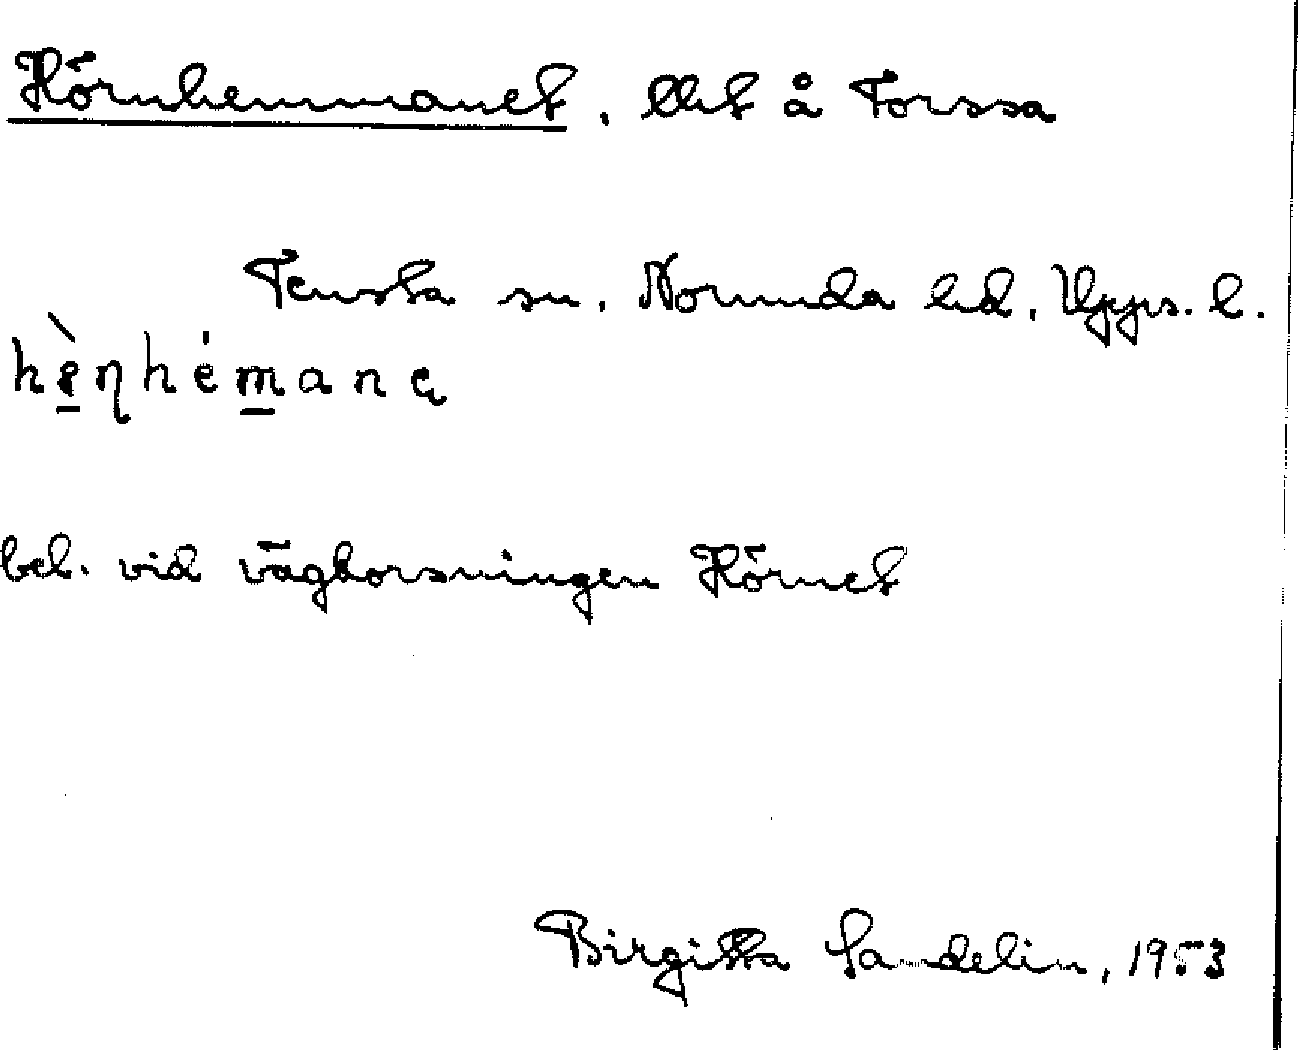 Hörnhemmanet, llht å Forssa
Tensta sn. Norunda hd. Upps. l.
bel. vid vägkorsningen Hörnet
Birgitta Sandelin, 1953